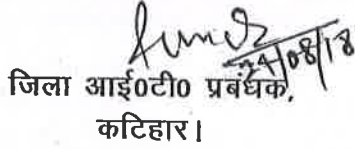 24/08/18
जिला आई0टी0 प्रबंधक,
कटिहार।